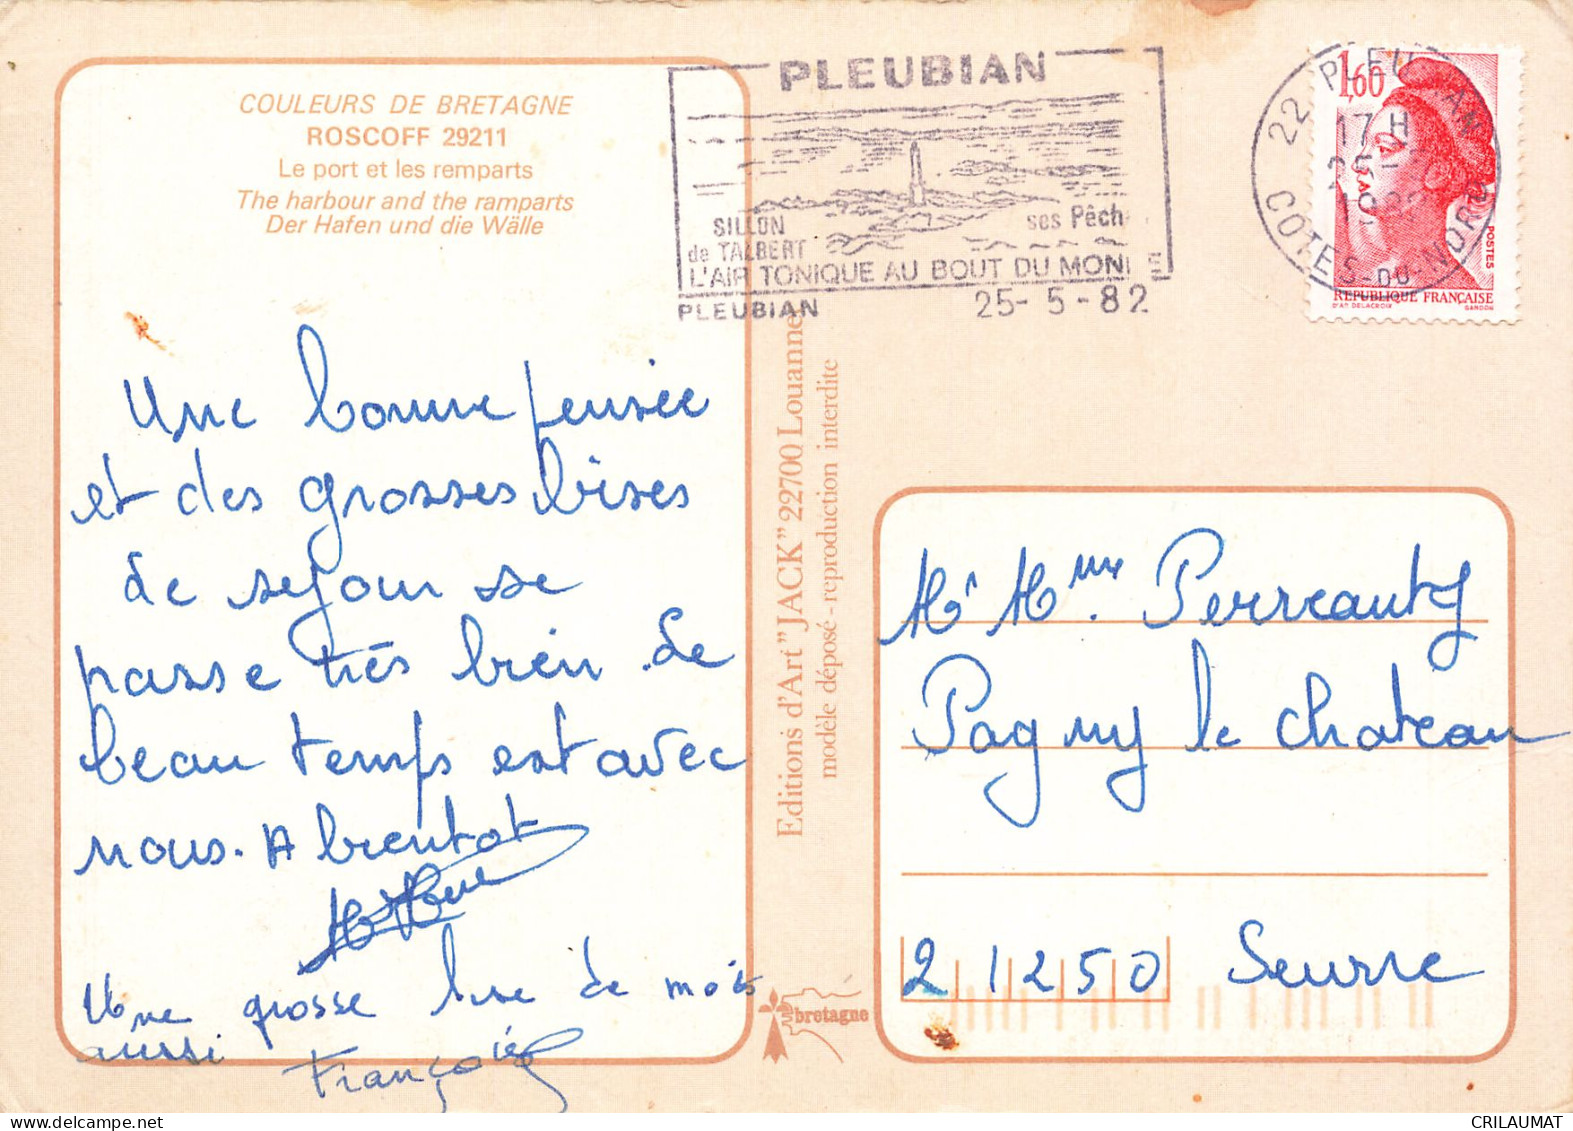 COULEURS DE BRETAGNE
ROSCOFF 29211
Le port et les remparts
The harbour and the ramparts
Der Hafen und die Wälle
PLEUBIAN
SILLON
de TALBERT
ses Pêch
L'AIR TONIQUE AU BOUT DU MON E
PLEUBIAN
25-5-82
22 PLEU AN
17 H
25-
1982
COTES-DU-NORD
1,60
POSTES
REPUBLIQUE FRANÇAISE
D'AP. DELACROIX
GANDON
Une bonne pensée
et des grosses bises
de sejour se
passe très bien. Le
beau temps est avec
nous. A bientot
Une grosse bise de mois
aussi
Editions d'Art "JACK" 22700 Louannec
modèle déposé - reproduction interdite
bretagne
Mr Mme. Perreaut
Pagny le chateau
21250 Seurre
CRILAUMAT